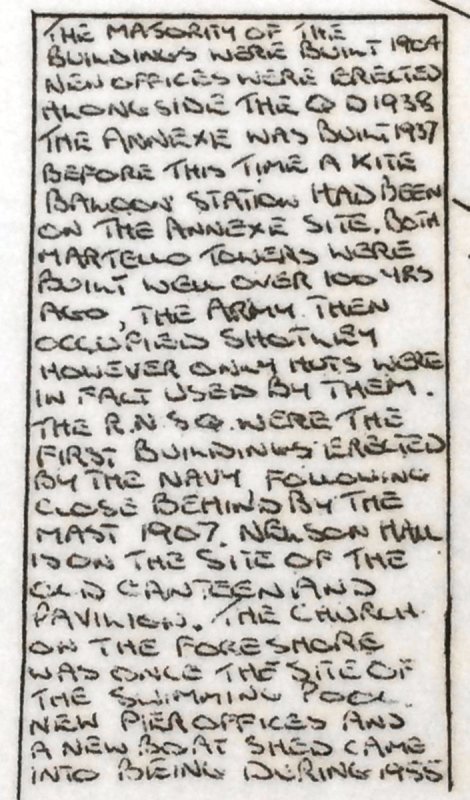 THE MAJORITY OF THE
BUILDINGS WERE BUILT 1904
NEW OFFICES WERE ERECTED
ALONGSIDE THE Q D 1938
THE ANNEXE WAS BUILT 1937
BEFORE THIS TIME A KITE
BALLOON STATION HAD BEEN
ON THE ANNEXE SITE. BOTH
MARTELLO TOWERS WERE
BUILT WELL OVER 100 YRS
AGO, THE ARMY THEN
OCCUPIED SHOTLEY
HOWEVER ONLY HUTS WERE
IN FACT USED BY THEM.
THE R.N.S.Q. WERE THE
FIRST BUILDINGS ERECTED
BY THE NAVY FOLLOWING
CLOSE BEHIND BY THE
MAST 1907. NELSON HALL
IS ON THE SITE OF THE
OLD CANTEEN AND
PAVILION. THE CHURCH
ON THE FORESHORE
WAS ONCE THE SITE OF
THE SWIMMING POOL.
NEW PIER OFFICES AND
A NEW BOAT SHED CAME
INTO BEING DURING 1955